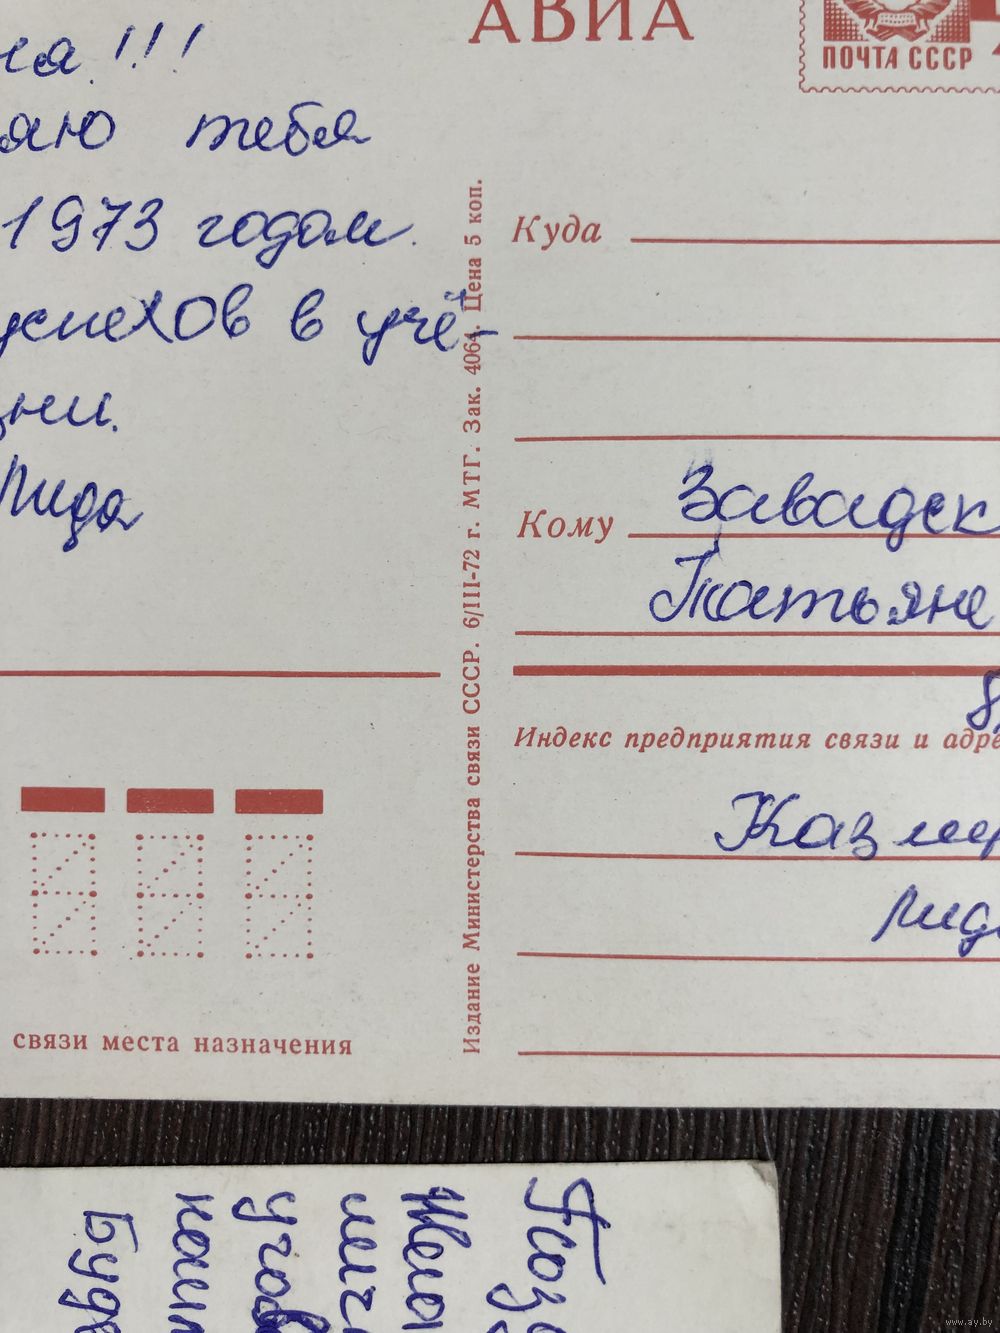 АВИА
ПОЧТА СССР
ня!!!
яю тебя
1973 годом.
успехов в учё-
зни.
Лида
Издание Министерства связи СССР. 6/III-72 г. МТГ. Зак. 4064. Цена 5 коп.
связи места назначения
Куда
Кому Завадск
Татьяне
8
Индекс предприятия связи и адре
Казмер
Лид
Поз
Жела
учов
Буд
www.ay.by